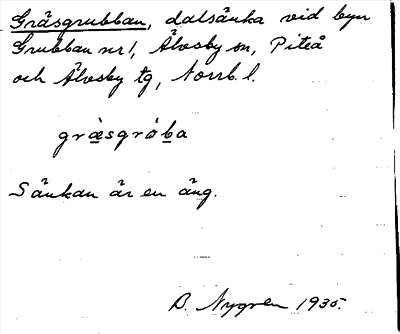 Gräsgrubban, dalsänka vid byn
Grubban nr 1, Älvsby sn, Piteå
och Älvsby tg, Norrb. l.
gräsgrȯba
Sänkan är en äng.
B. Nygren 1935.